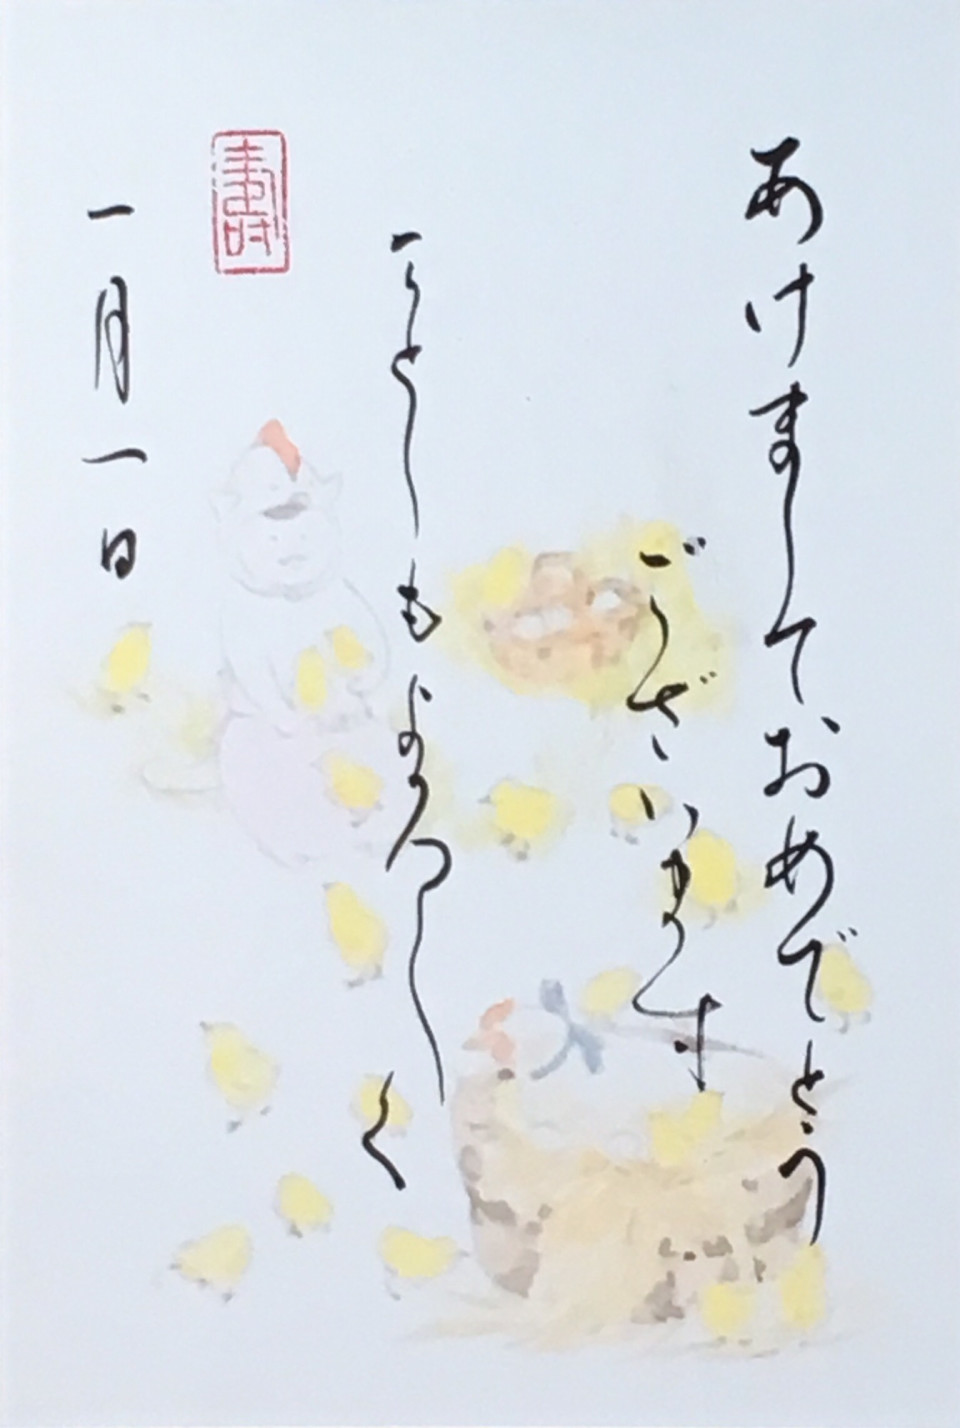 あけましておめでとう
ございます
ことしもよろしく
壽
一月一日